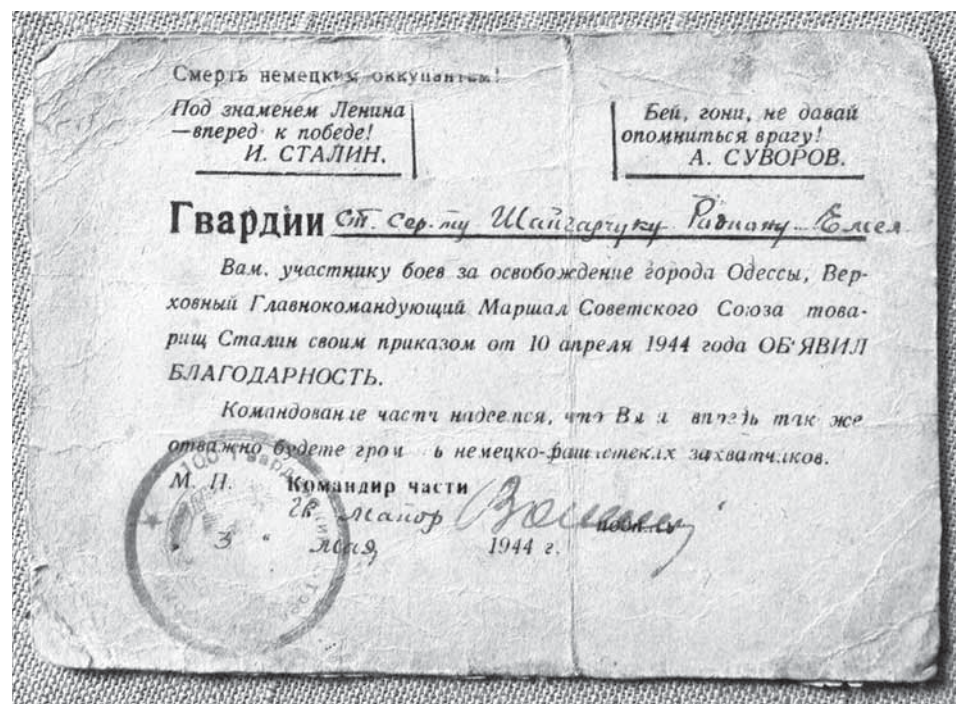 Смерть немецким оккупантам!
Под знаменем Ленина
—вперед к победе!
И. СТАЛИН.
Бей, гони, не давай
опомниться врагу!
А. СУВОРОВ.
Гвардии ст. сер-ту Шайгарчуку Емел.
Вам, участнику боев за освобождение города Одессы, Вер-
ховный Главнокомандующий Маршал Советского Союза това-
рищ Сталин своим приказом от 10 апреля 1944 года ОБ'ЯВИЛ
БЛАГОДАРНОСТЬ.
Командование части надеется, что Вы и впредь так же
отважно будете громить немецко-фашистских захватчиков.
М. П. Командир части
Гв. майор
„ 3 “ мая 1944 г.